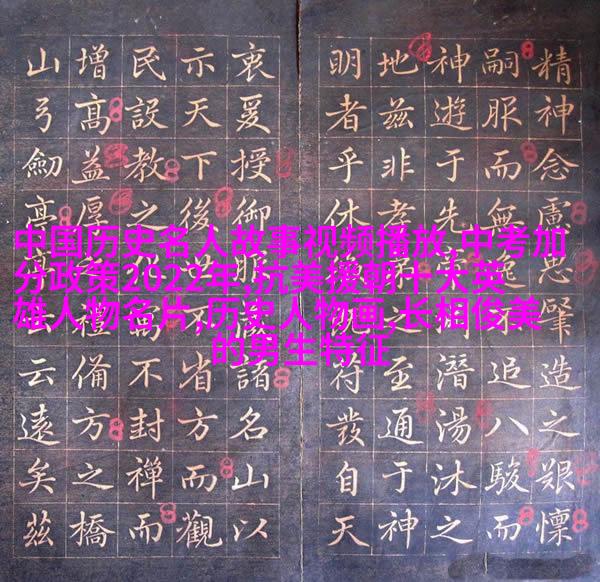 中国历史名人故事视频播放,中考加
分政策2022年,抗美援朝十大英
雄人物名片,历史人物画,长相俊美
的男生特征
精神念慮肇造之艱懍
嗣服而無逸追八駿而
神遊于先潛湯沐之
地茲非孝至通于神
明者乎休符發自天
衷爰授御諸名山以
示天下後省方而觀
民設教之不封禪而
增高益厚備方之橋
山弓劍云遠矣茲